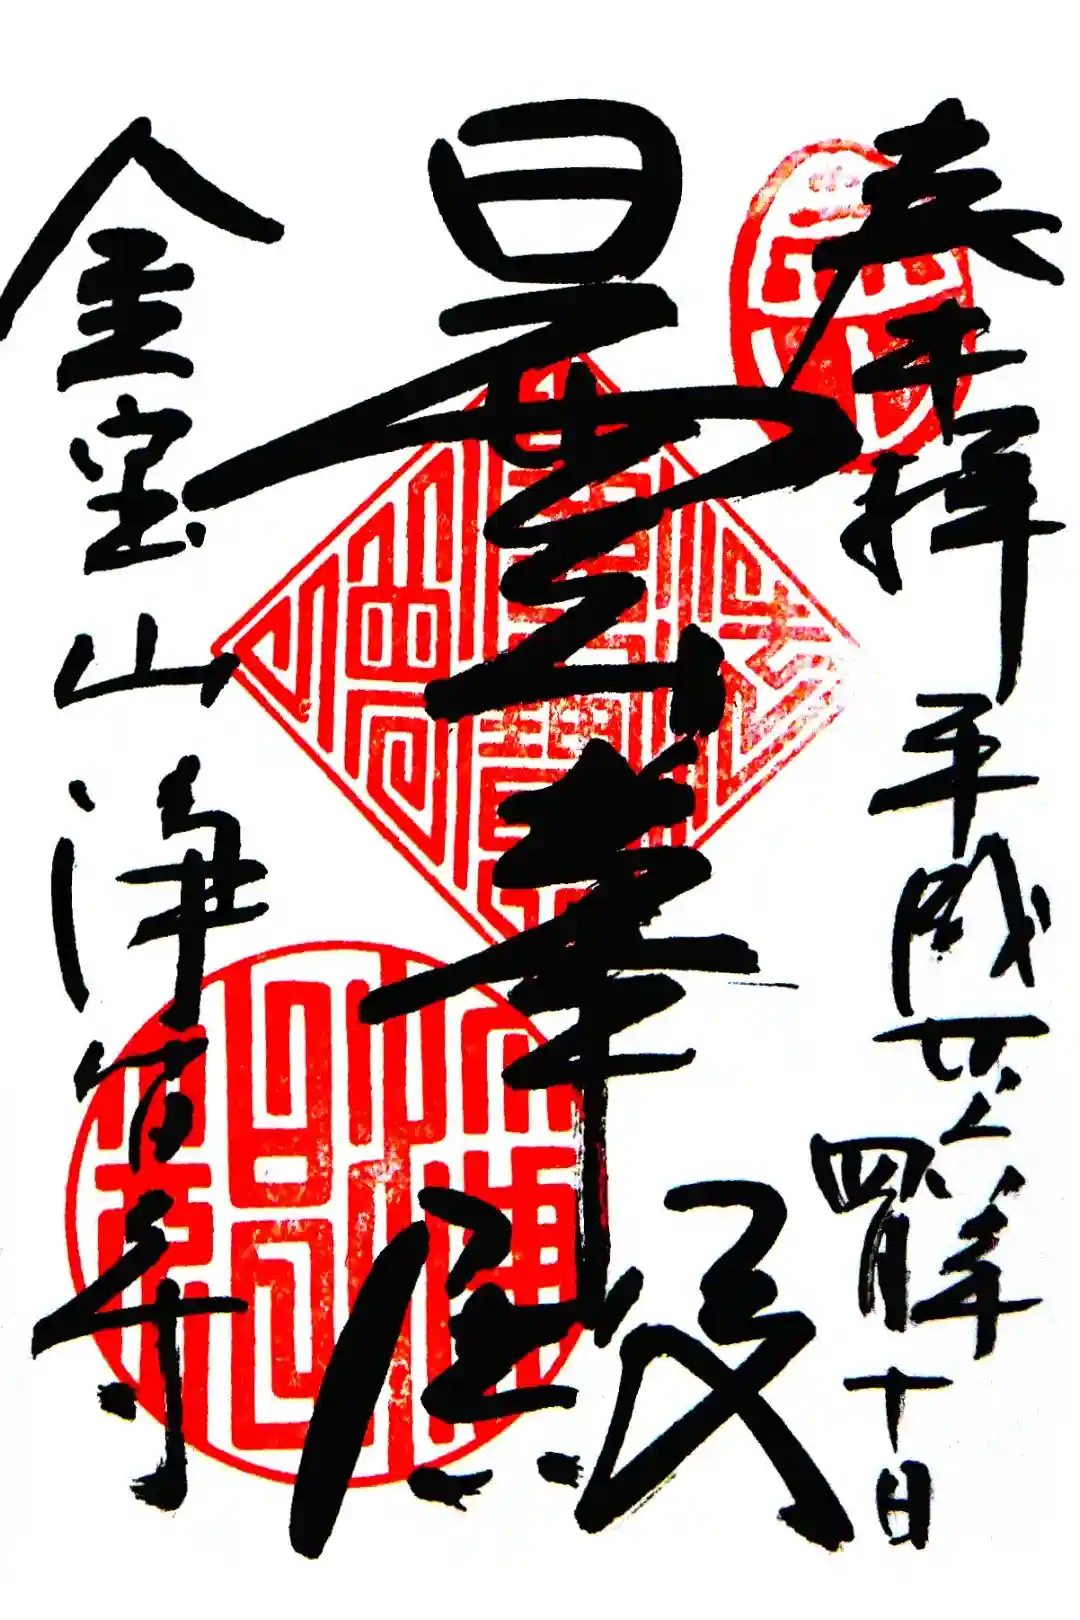 奉拝 平成廿八年 四月十日
曇華殿
金宝山 浄智寺